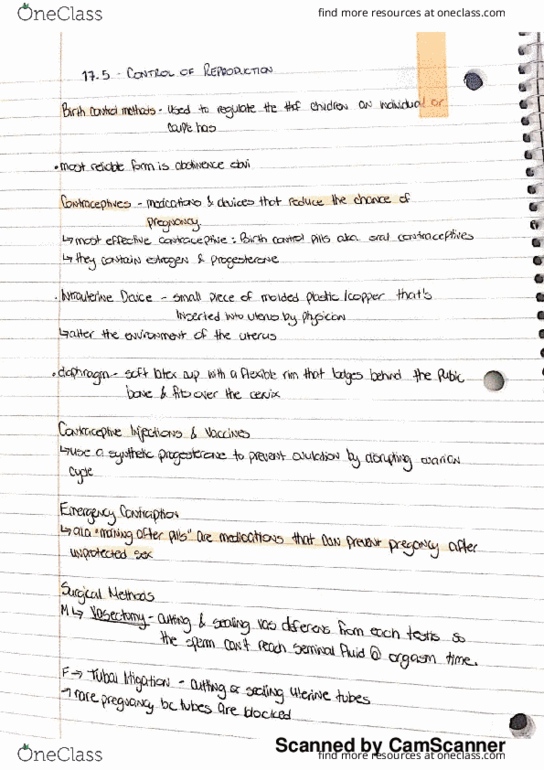 OneClass
find more resources at oneclass.com
17.5 - CONTROL OF REPRODUCTION
Birth control methods - used to regulate the # of children an individual or
couple has
• most reliable form is abstinence obvi
Contraceptives - medications & devices that reduce the chance of
pregnancy
↳ most effective contraceptive: Birth control pills aka oral contraceptives
↳ they contain estrogen & progesterone
• Intrauterine Device - small piece of molded plastic/copper that's
inserted into uterus by physician
↳ alter the environment of the uterus
• diaphragm - soft latex cup with a flexible rim that lodges behind the pubic
bone & fits over the cervix
Contraceptive Injections & Vaccines
↳ use a synthetic progesterone to prevent ovulation by disrupting ovarian
cycle
Emergency Contraception
↳ aka "morning after pills" are medications that can prevent pregnancy after
unprotected sex
Surgical Methods
M ↳ Vasectomy - cutting & sealing vas deferens from each testis so
the sperm can't reach seminal fluid @ orgasm time.
F → Tubal litigation - cutting or sealing uterine tubes
→ rare pregnancy bc tubes are blocked
OneClass
Scanned by CamScanner
find more resources at oneclass.com